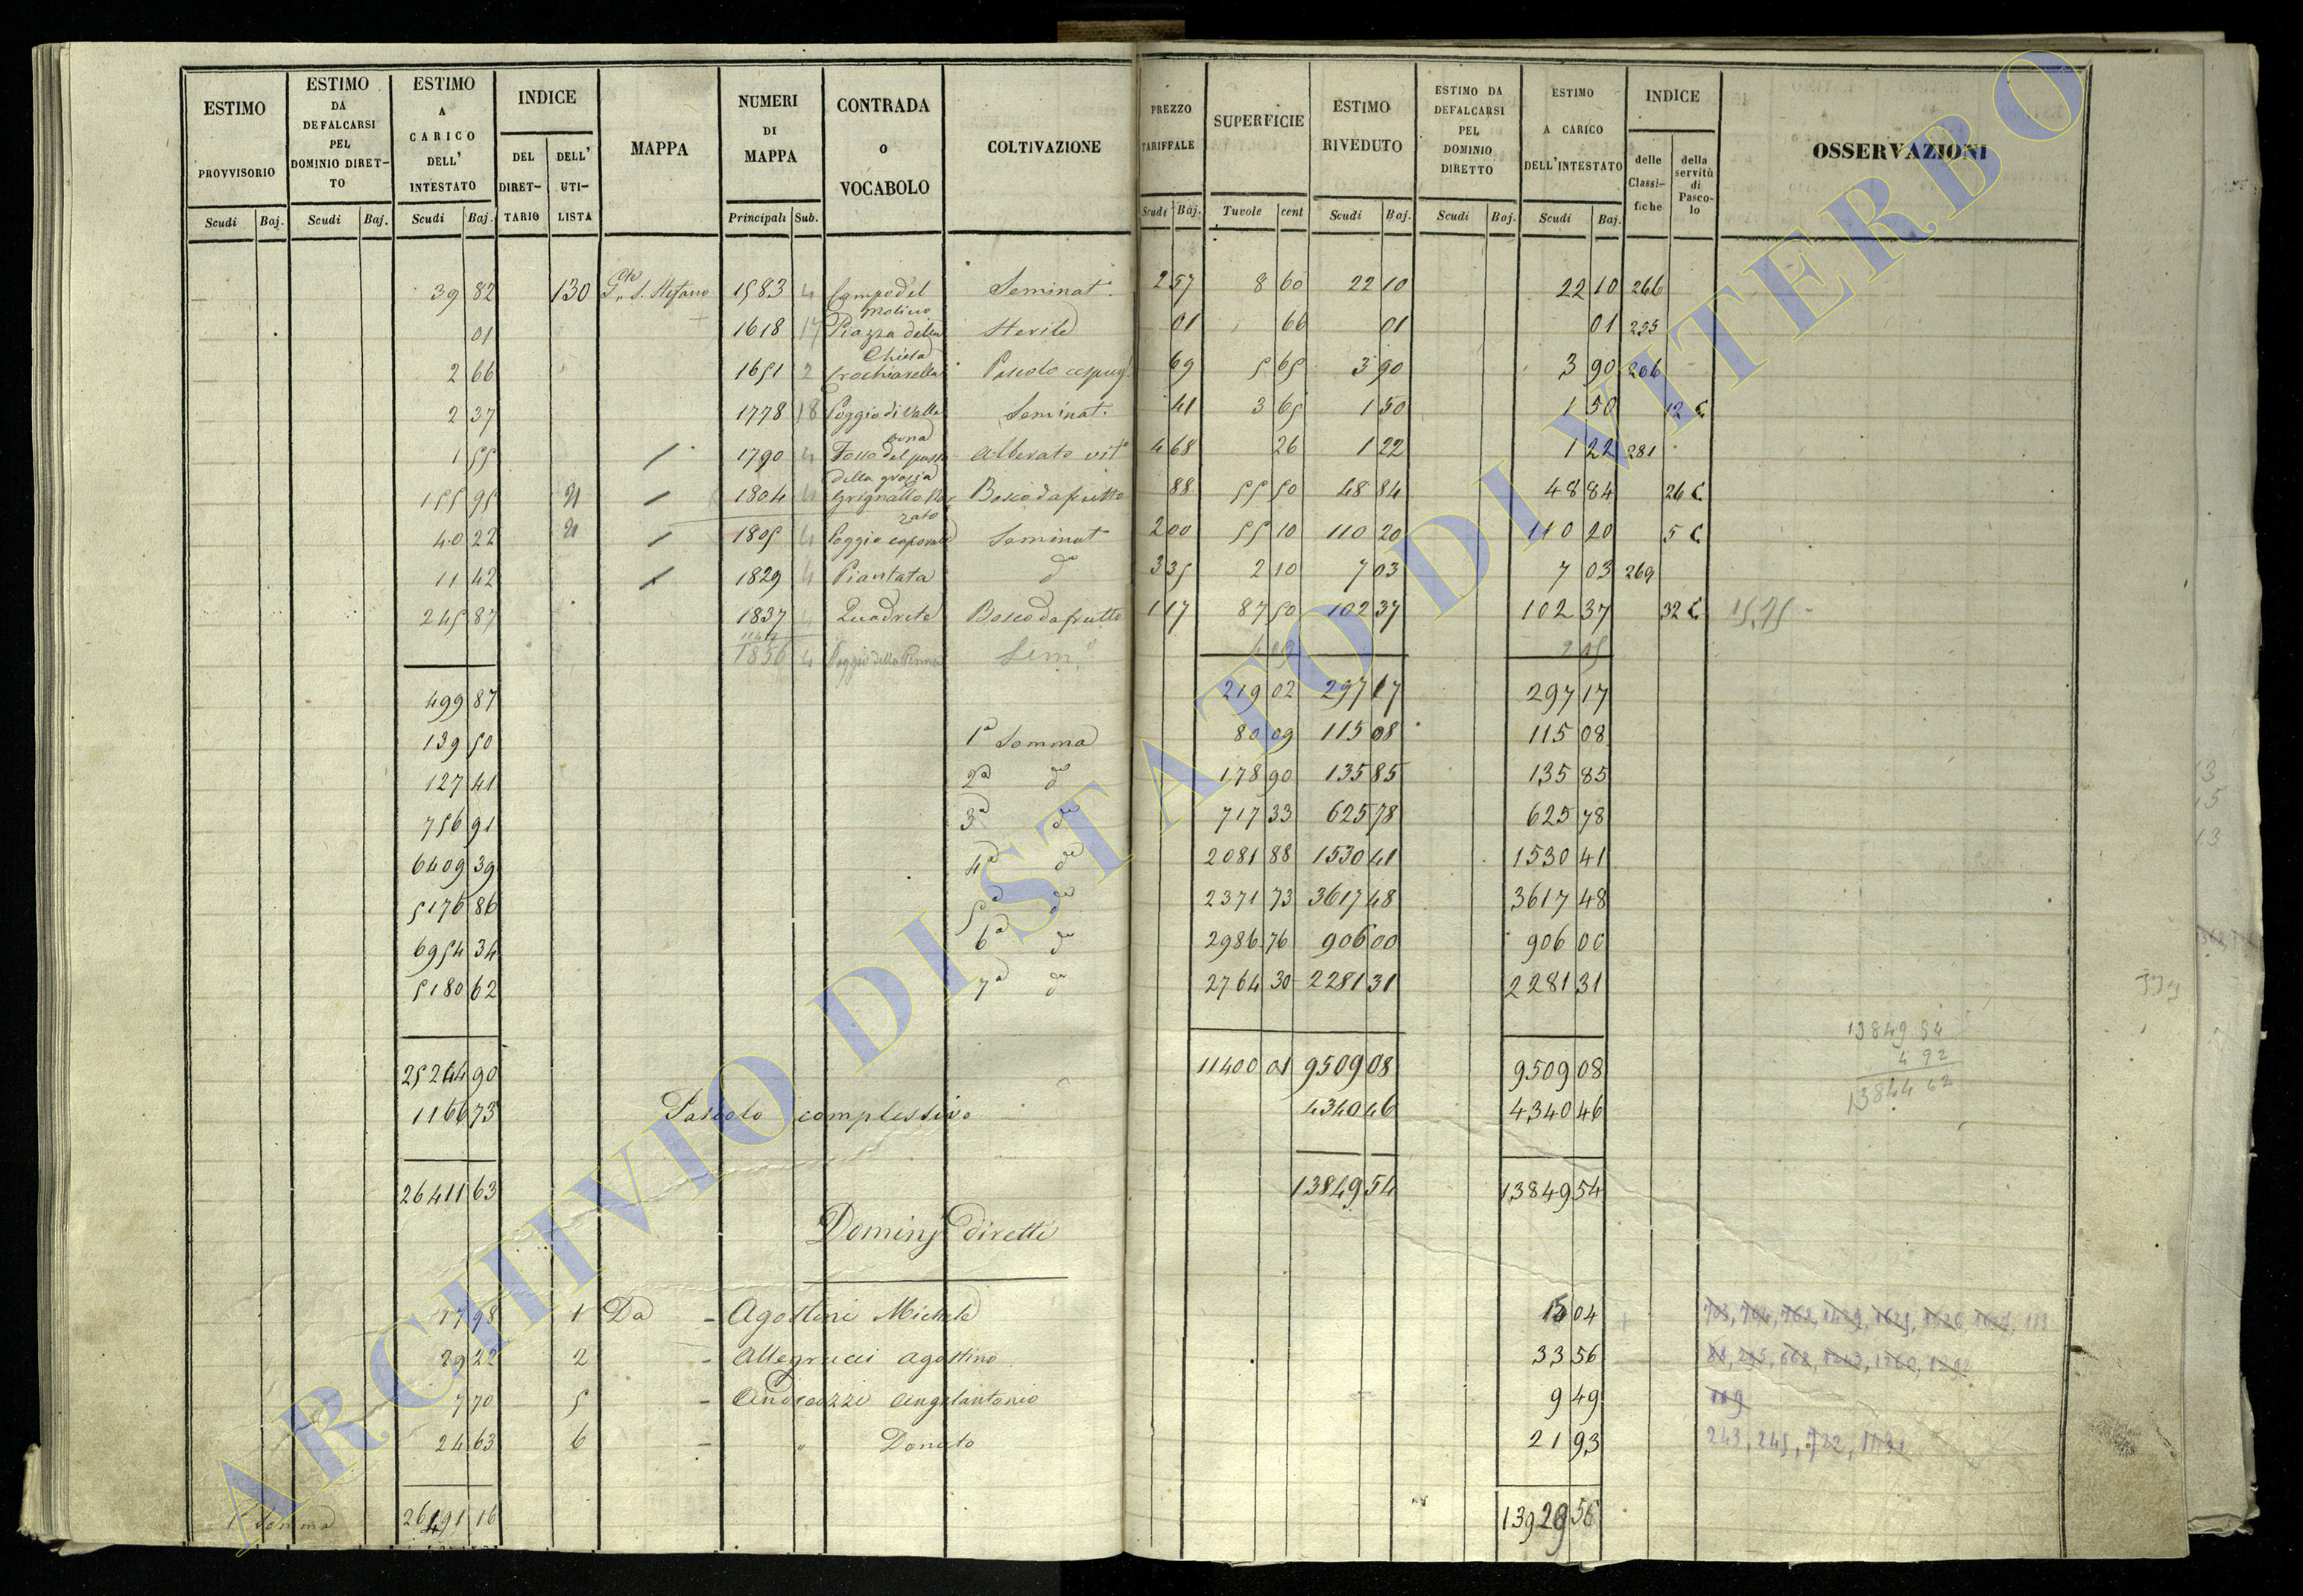 ESTIMO PROVVISORIO Scudi Baj.
ESTIMO DA DEFALCARSI PEL DOMINIO DIRET-TO Scudi Baj.
ESTIMO A CARICO DELL' INTESTATO Scudi Baj.
INDICE DEL DIRET-TARIO DELL' UTI-LISTA
MAPPA
NUMERI DI MAPPA Principali Sub.
CONTRADA o VOCABOLO
COLTIVAZIONE
PREZZO TARIFFALE Scudi Baj.
SUPERFICIE Tavole cent
ESTIMO RIVEDUTO Scudi Baj.
ESTIMO DA DEFALCARSI PEL DOMINIO DIRETTO Scudi Baj.
ESTIMO A CARICO DELL'INTESTATO Scudi Baj.
INDICE delle Classi-fiche della servitù di Pasco-lo
OSSERVAZIONI
39 82 130 S. Stefano 1583 4 Campo del Molino Seminat. 2 57 8 60 22 10 22 10 266
01 1618 17 Piazza della Chiesa Sterile 01 66 01 01 235
2 66 1651 2 Crochiarella Pascolo cespug. 69 5 65 3 90 3 90 206
2 37 1778 18 Poggio di Valle bona Seminat. 41 3 65 1 50 1 50 12 C
1 55 1790 4 Fosso del passo della grazia Alberato vit 4 68 26 1 22 1 22 281
155 95 21 1804 4 Bosco da frutto 88 55 50 48 84 48 84 26 C
40 22 21 1805 4 Poggio caporale Seminat 2 00 55 10 110 20 110 20 5 C
11 42 1829 4 Piantata do 3 35 2 10 7 03 7 03 269
245 87 1837 4 Quadrete Bosco da frutto 1 17 87 50 102 37 102 37 32 C
1856 4 Poggio della Penna Sem.
499 87 219 02 297 17 297 17
139 50 1a Somma 80 09 115 08 115 08
127 41 2a do 178 90 135 85 135 85
756 91 3a do 717 33 625 78 625 78
6409 39 4a do 2081 88 1530 41 1530 41
5176 86 5a do 2371 73 3617 48 3617 48
6954 34 6a do 2986 76 906 00 906 00
5180 62 7a do 2764 30 2281 31 2281 31
13849 54
4 92
13844 62
25244 90 11400 01 9509 08 9509 08
1166 73 Pascolo complessivo 4340 46 4340 46
26411 63 13849 54 13849 54
Dominj diretti
17 98 1 Da - Agostini Michele 15 04
29 22 2 - Allegrucci Agostino 33 56
7 70 5 - Andreozzi Angelantonio 9 49 119
24 63 6 - " Donato 21 93 243, 245, 722
1a Somma 26491 16 13929 56
ARCHIVIO DI STATO DI VITERBO